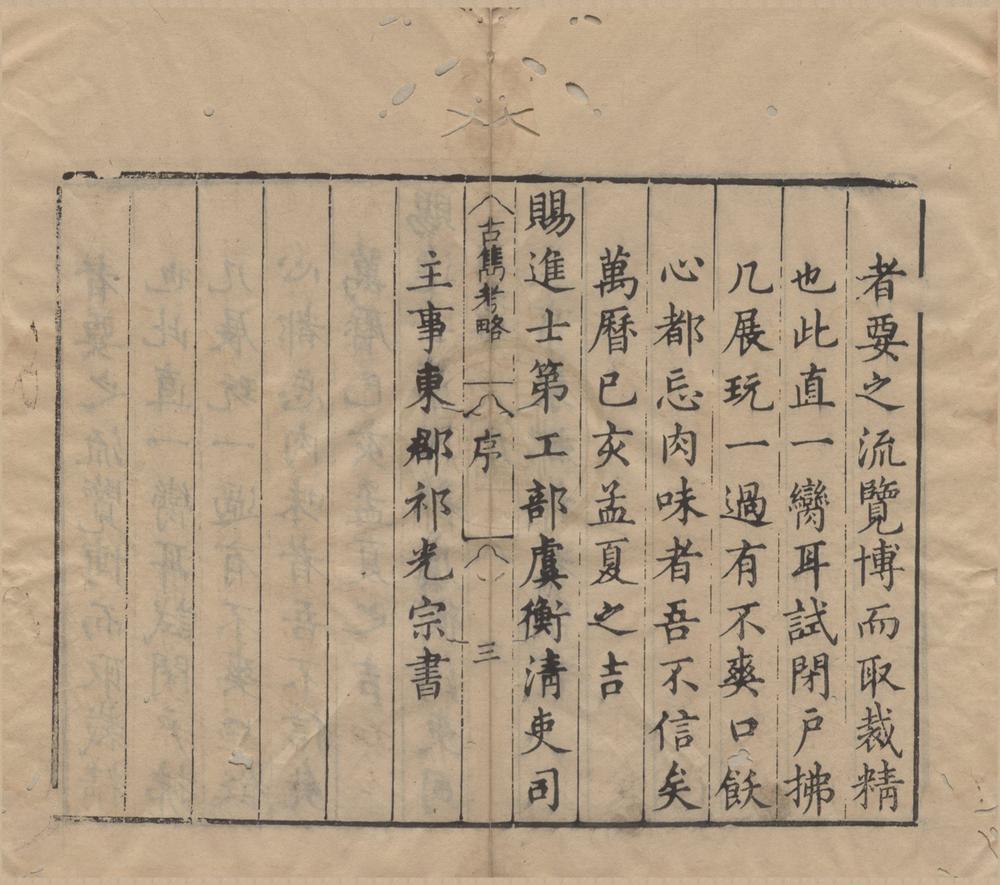 者要之流覽博而取裁精
也此直一臠耳試閉戶拂
几展玩一過有不爽口飫
心都忘肉味者吾不信矣
萬曆已亥孟夏之吉
賜進士第工部虞衡清吏司
古雋考略 序 三
主事東郡祁光宗書